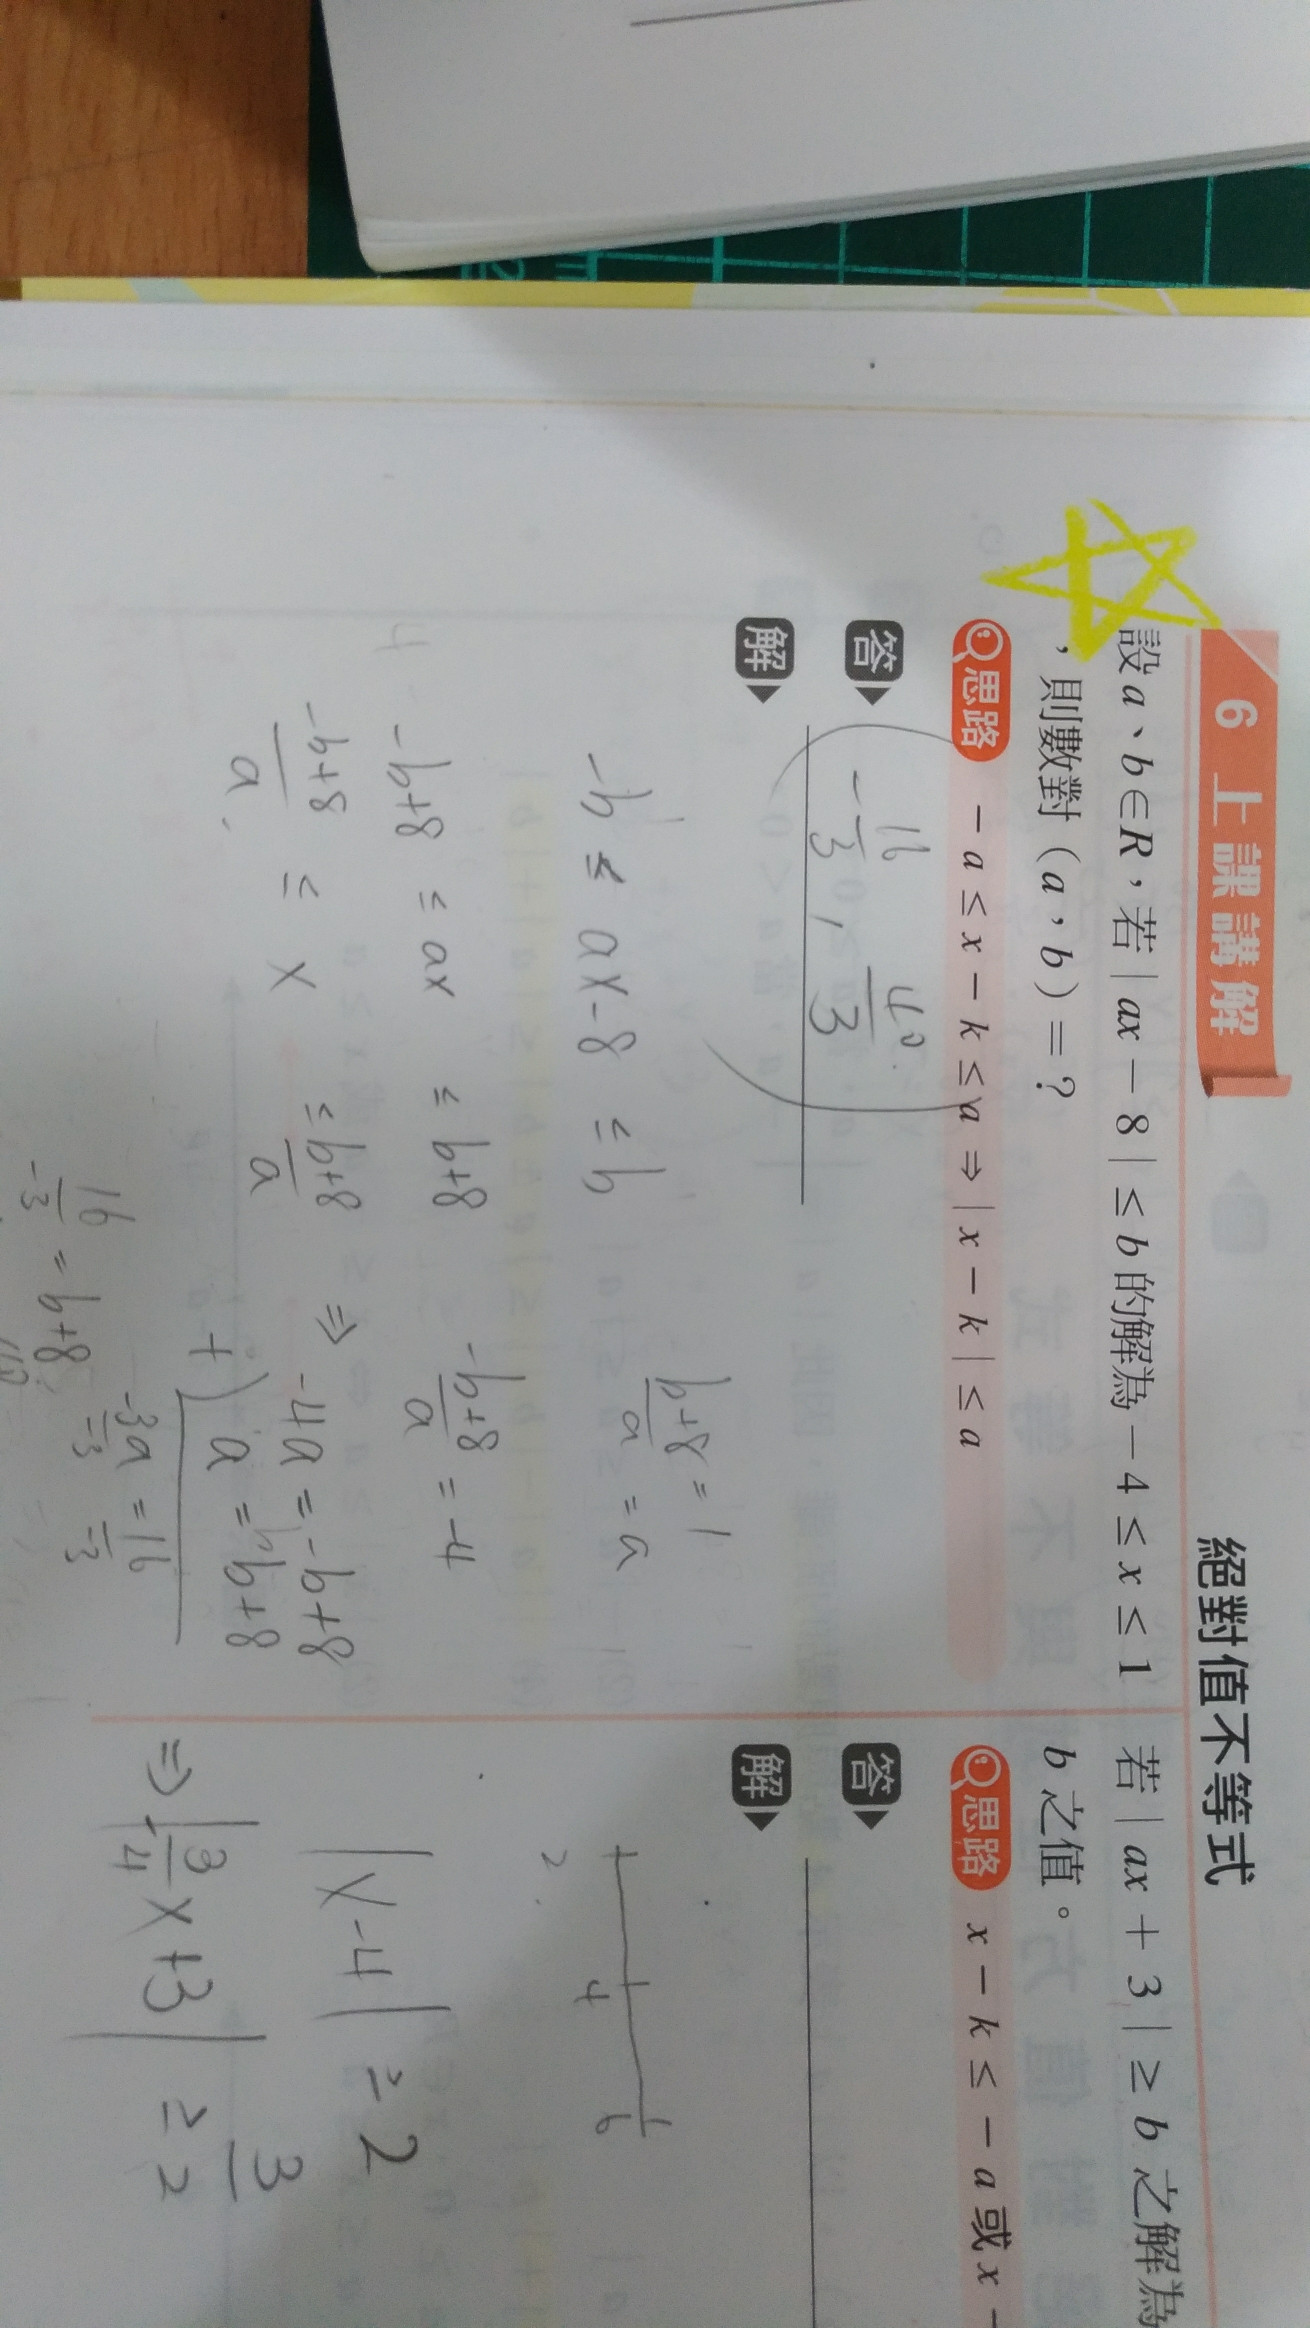 絕對值不等式
6 上課講解
設 a、b∈R，若 | ax − 8 | ≤ b 的解為 − 4 ≤ x ≤ 1
，則數對（a，b）= ?
思路 − a ≤ x − k ≤ a ⇒ | x − k | ≤ a
答 -16/3, 40/3
解
b+8/a = 1
-b ≤ ax-8 ≤ b = a
-b+8/a = -4
-b+8 ≤ ax ≤ b+8
-b+8/a ≤ x ≤ b+8/a ⇒ -4a = -b+8
+) a = b+8
-3a = 16
-3 -3
16/-3 = b+8
若 | ax + 3 | ≥ b 之解為
b 之值。
思路 x − k ≤ − a 或 x −
答
解
2 4 6
|x-4| ≥ 2
⇒ |-3/4 x +3| ≥ 3/2